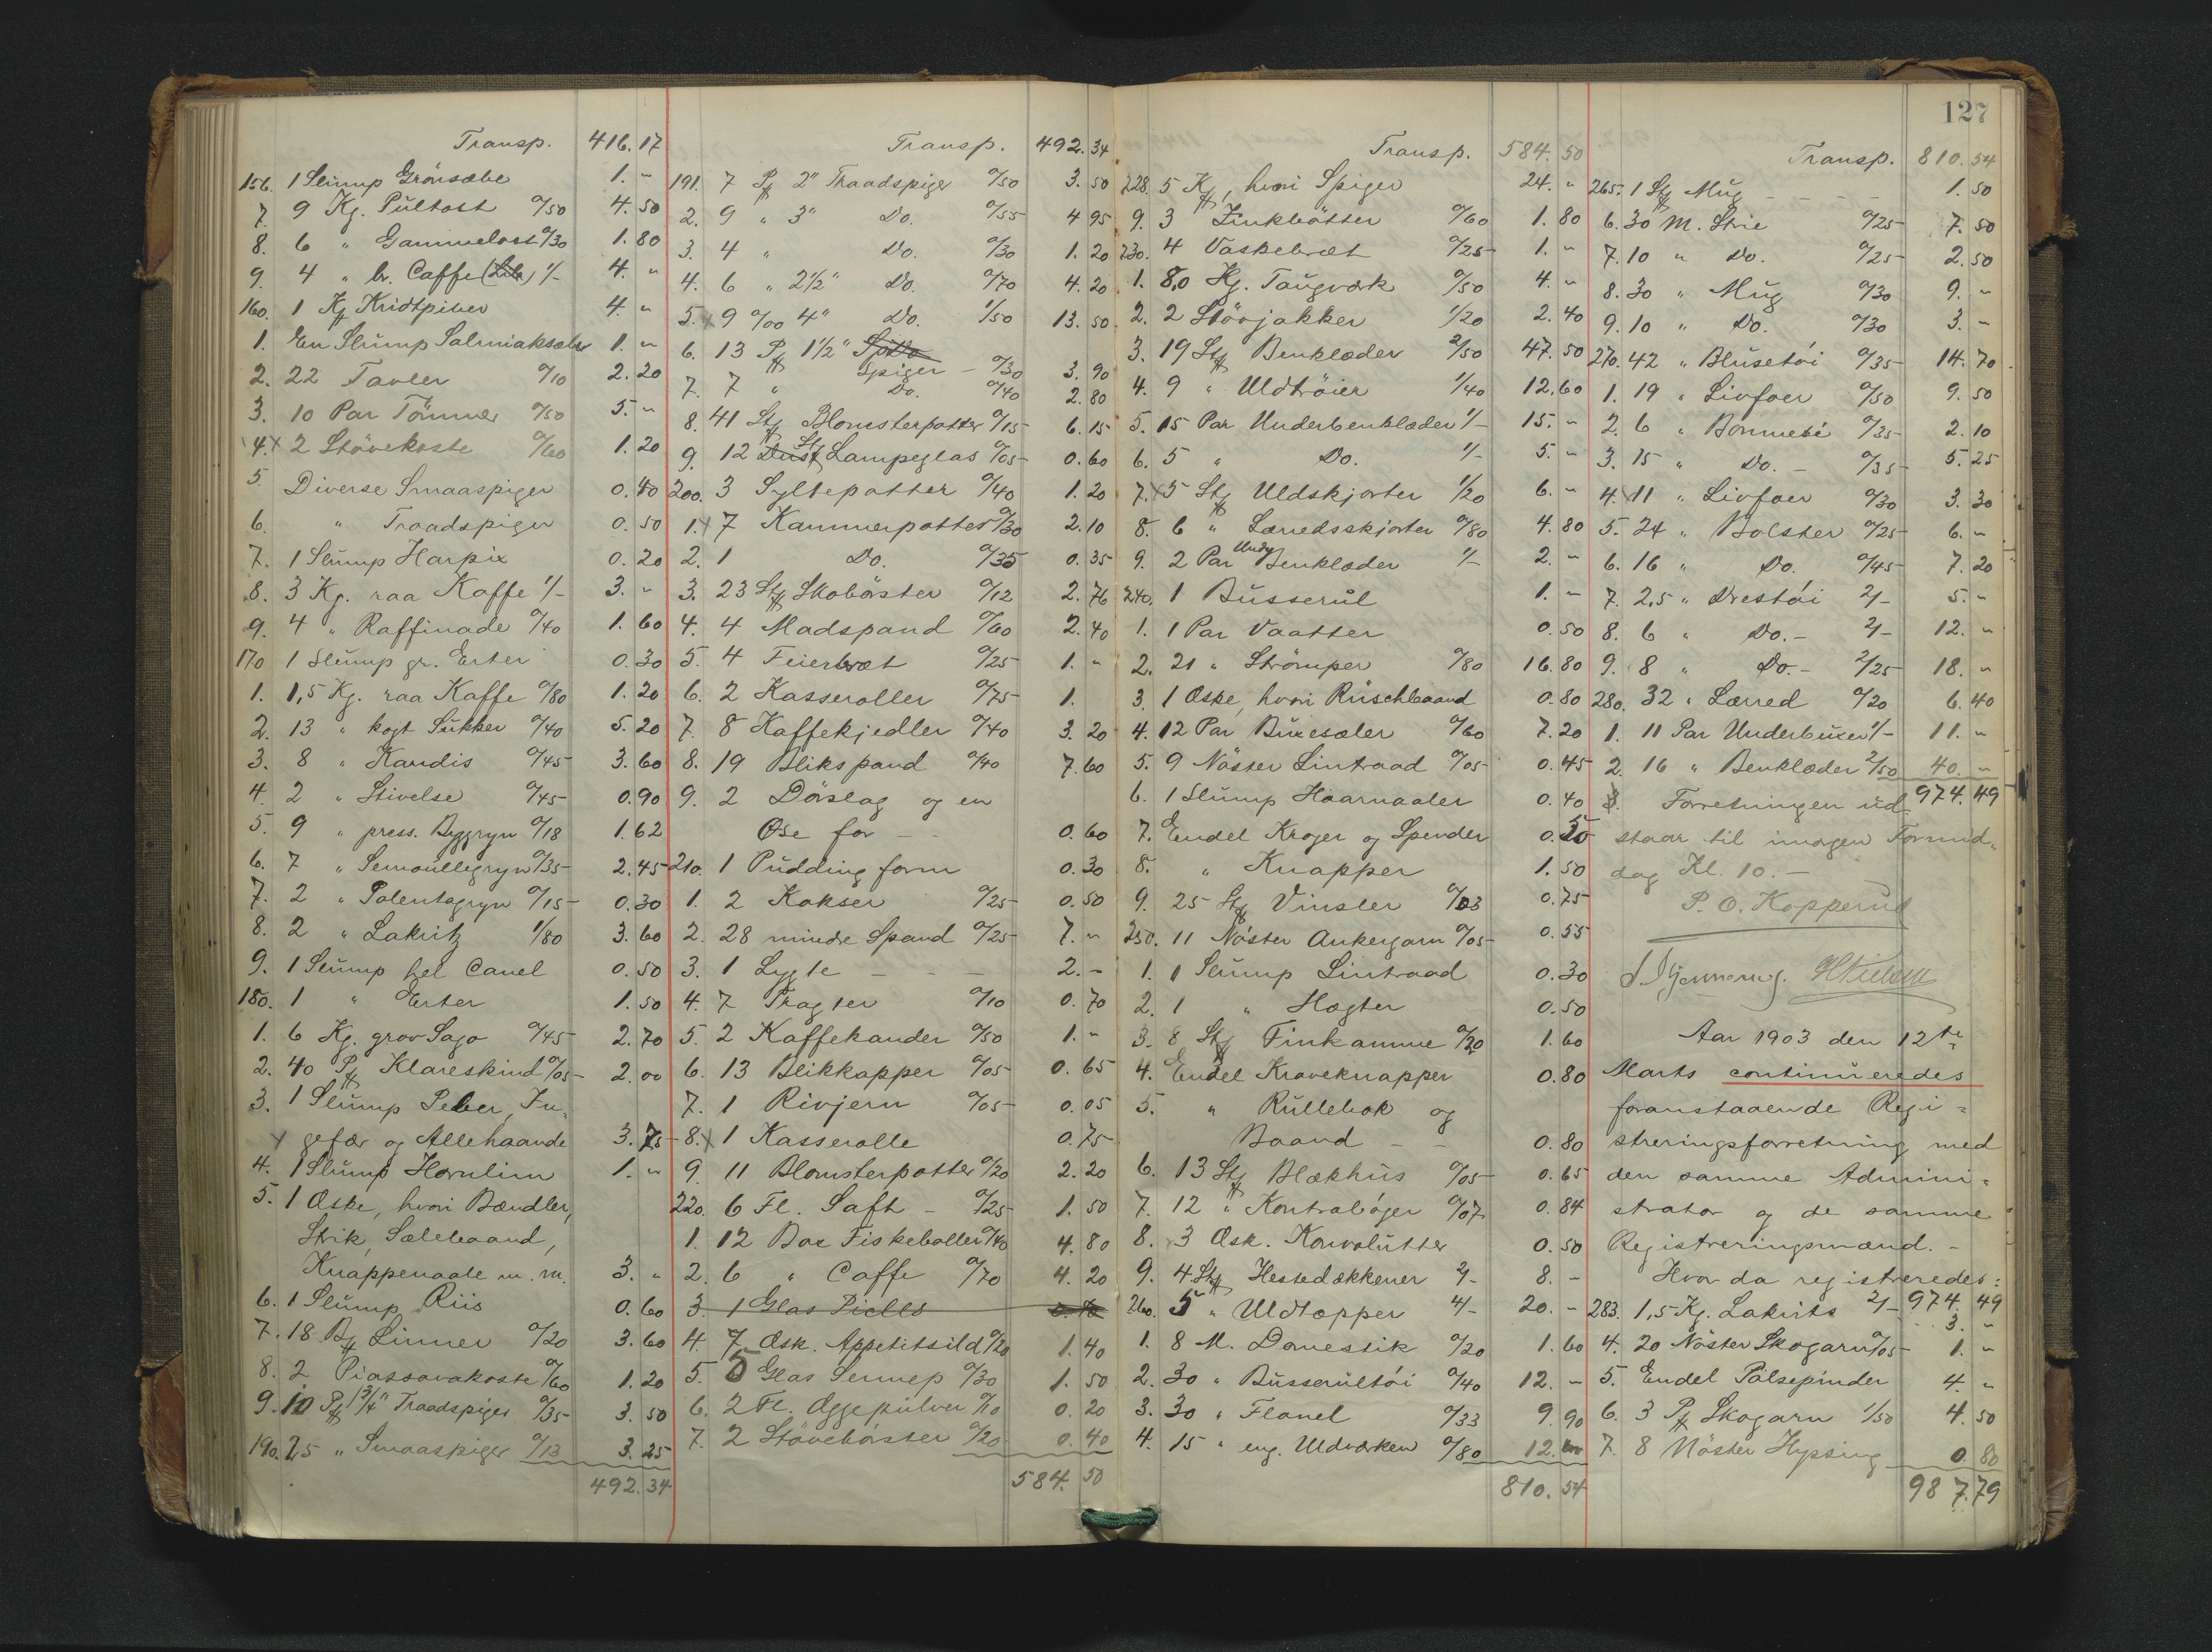 127
Transp. 416.17
156. 1 Slump Grönsæbe 1. "
7. 9 Kg. Pultost 0/50 4.50
8. 6 " Gammelost 0/30 1.80
9. 4 " br. Caffe 1/- 4. "
160. 1 Kridtpiber 4. "
1. En Slump Salmiaksælv 1. "
2. 22 Tavler 0/10 2.20
3. 10 Par Tömmer 0/50 5. "
4. x 2 Stövekoste 0/60 1.20
5. Diverse Smaaspiger 0.40
6. " Traadspiger 0.50
7. 1 Slump Harpix 0.20
8. 3 Kg. raa Kaffe 1/- 3. "
9. 4 " Raffinade 0/40 1.60
170 1 Slump gr. Erter 0.30
1. 1,5 Kg. raa Kaffe 0/80 1.20
2. 13 " kogt Sukker 0/40 5.20
3. 8 " Kandis 0/45 3.60
4. 2 " Stivelse 0/45 0.90
5. 9 " press. Byggryn 0/18 1.62
6. 7 " Semoullegryn 0/35 2.45
7. 2 " Polentagryn 0/15 0.30
8. 2 " Lakritz 1/80 3.60
9. 1 Slump hel Canel 0.50
180. 1 " Erter 1.50
1. 6 Kg. grov Sago 0/45 2.70
2. 40 Pk Klareskind 0/05 2.00
3. 1 Slump Peber, In-
x gefær og Allehaande 3.75
4. 1 Slump Hornlim 1. "
5. 1 Æske, hvori Bændler,
Strik, Sælebaand,
Knappenaale m. m. 3. "
6. 1 Slump Riis 0.60
7. 18 Linner 0/20 3.60
8. 2 Piassavakoste 0/60 1.20
9. 10 Pk 1 3/4" Traadspiger 0/35 3.50
190. 25 " Smaaspiger 0/13 3.25
492.34
Transp. 492.34
191. 7 Pk 2" Traadspiger 0/50 3.50
2. 9 " 3" Do. 0/55 4 95
3. 4 " Do. 0/30 1.20
4. 6 " 2 1/2" Do. 0/70 4.20
5. x 9 0/00 4" Do. 1/50 13.50
6. 13 Pk 1 1/2" Spiger - 0/30 3.90
7. 7 " Do. 0/40 2.80
8. 41 Stk Blomsterpotter 0/15 6.15
9. 12 Stk Lampeglas 0/05 0.60
200. 3 Syltepotter 0/40 1.20
1. x 7 Kammerpotter 0/30 2.10
2. 1 Do. 0/35 0.35
3. 23 Stk Skobörster 0/12 2.76
4. 4 Madspand 0/60 2.40
5. 4 Feierbræt 0/25 1. "
6. 2 Kasseroller 0/75 1.
7. 8 Kaffekjedler 0/40 3.20
8. 19 Blikspand 0/40 7.60
9. 2 Dörslag og en
Öse for - - 0.60
210. 1 Pudding form 0.30
1. 2 Kokser 0/25 0.50
2. 28 mindre Spand 0/25 7. "
3. 1 Lygte - - - 2. -
4. 7 Tragter 0/10 0.70
5. 2 Kaffekander 0/50 1. "
6. 13 Blikkopper 0/05 0.65
7. 1 Rivjern 0/05 0.05
8. x 1 Kasserolle 0.75
9. 11 Blomsterpotter 0/20 2.20
220. 6 Fl. Saft - 0/25 1.50
1. 12 Box Fiskeboller 0/40 4.80
2. 6 " Caffe 0/70 4.20
3. 1 Glas Picles
4. 7 Æsk. Appetitsild 0/20 1.40
5. 5 Glas Sennep 0/30 1.50
6. 2 Fl. Æggepulver 0/10 0.20
7. 2 Stövebörster 0/20 0.40
584.50
Transp. 584.50
228. 5 Kk, hvori Spiger 24. "
9. 3 Zinkbötter 0/60 1.80
230. 4 Vaskebræt 0/25 1. "
1. 8,0 Kg. Taugværk 0/50 4. "
2. 2 Stövjakker 1/20 2.40
3. 19 Stk Benklæder 2/50 47.50
4. 9 " Uldtröier 1/40 12.60
5. 15 Par Underbenklæder 1/- 15. "
6. 5 " Do. 1/- 5. "
7. x 5 Stk Uldskjorter 1/20 6. "
8. 6 " Lærredsskjorter 0/80 4.80
9. 2 Par Under Benklæder 1/- 2. "
240. 1 Busserul 1. "
1. 1 Par Vaatter 0.50
2. 21 " Strömper 0/80 16.80
3. 1 Æske, hvori Rüschbaand 0.80
4. 12 Par Buxesæler 0/60 7.20
5. 9 Nöster Lintraad 0/05 0.45
6. 1 Slump Haarnaaler 0.40
7. Endel Kroger og Spender
8. " Knapper 1.50
9. 25 Stk Vinsler 0/03 0.75
250. 11 Nöster Ankergarn 0/05 0.55
1. 1 Slump Lintraad 0.30
2. 1 " Hægter 0.50
3. 8 Stk Finkamme 0/20 1.60
4. Endel Kraveknapper 0.80
5. " Rullebok og
Baand - - 0.80
6. 13 Stk Blækhus 0/05 0.65
7. 12 " Kontrabøger 0/07 0.84
8. 3 Æsk. Konvolutter 0.50
9. 4 Stk Hestedækkener 2/- 8. -
260. 5 " Uldtæpper 4/- 20. -
1. 8 M. Domestik 0/20 1.60
2. 30 " Busserultöi 0/40 12. -
3. 30 " Flanel 0/33 9.90
4. 15 " eng. Uldværken 0/80 12.
810.54
Transp. 810.54
265. 1 Stk Mug - - - - 1.50
6. 30 M. Strie 0/25 7.50
7. 10 " Do. 0/25 2.50
8. 30 " Mug 0/30 9. -
9. 10 " Do. 0/30 3. -
270. 42 " Blusetöi 0/35 14.70
1. 19 " Livfoer 0/50 9.50
2. 6 " Bommesi 0/35 2.10
3. 15 " Do. - 0/35 5.25
4. x 11 " Livfoer 0/30 3.30
5. 24 " Bolster 0/25 6. "
6. 16 " Do. 0/45 7.20
7. 2,5 " Drestöi 2/- 5. "
8. 6 " Do. - 2/- 12. "
9. 8 " Do. - 2/25 18. "
280. 32 " Lærred 0/20 6.40
1. 11 Par Underbuxer 1/- 11. "
2. 16 " Benklæder 2/50 40. "
974.49
Forretningen ud
staar til imorgen Formid-
dag Kl. 10. -
P. O. Kopperud
Aar 1903 den 12te
Marts continueredes
foranstaaende Regi-
streringsforretning med
den samme Admini-
strator og de samme
Registreringsmænd. -
Hvor da registreredes:
974.49
283. 1,5 Kg. Lakrits 2/- 3. "
4. 20 Nöster Skogarn 0/05 1. "
5. Endel Pölsepinder 4. "
6. 3 Pk Skogarn 1/50 4.50
7. 8 Nöster Hyssing 0.80
987.79